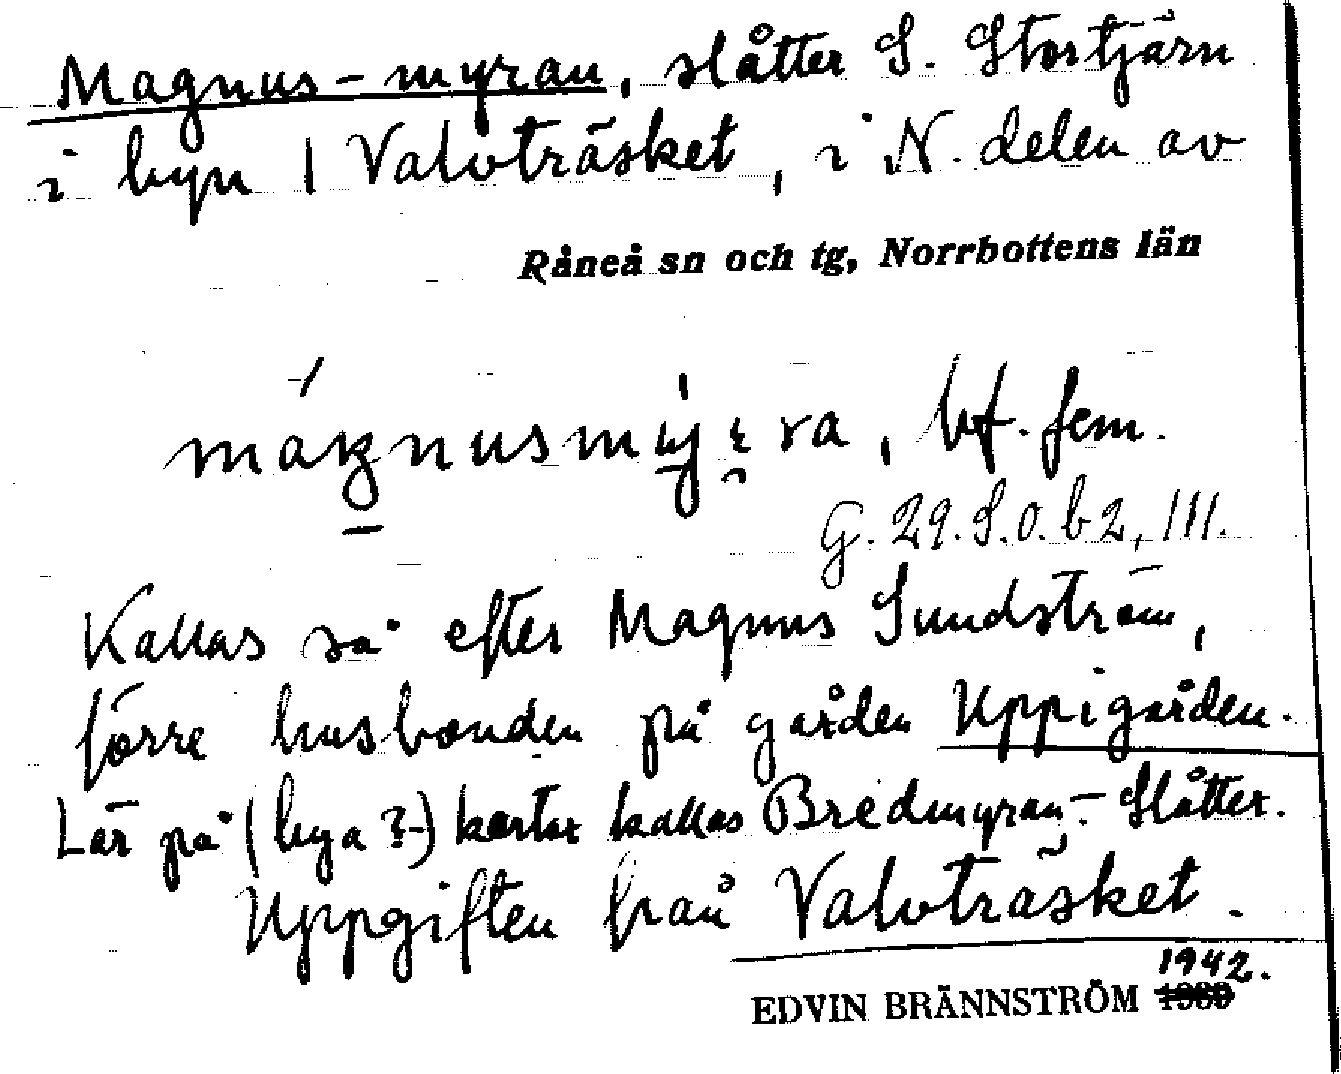 Magnus-myran, slåtter S. Stortjärn
i byn | Valvträsket, i N. delen av
Råneå sn och tg, Norrbottens län
bf. fem.
G. 29. S. o. b 2, III.
Kallas så efter Magnus Sundström,
förre husbonden på gården Uppigården.
Lär på (nya?) kartor kallas Bredmyran. - Slåtter.
Uppgiften från Valvträsket.
1942.
EDVIN BRÄNNSTRÖM